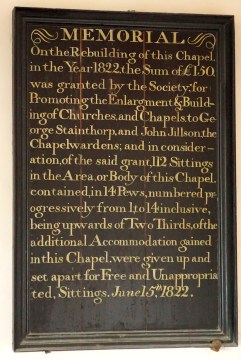 MEMORIAL
On the Rebuilding of this Chapel,
in the Year 1822, the Sum of £150.
was granted by the Society for
Promoting the Enlargment & Build-
ing of Churches, and Chapels, to Ge
orge Stainthorp, and John Jillson, the
Chapelwardens; and in consider-
ation, of the said grant, 112 Sittings
in the Area, or Body of this Chapel
contained, in 14 Pews, numbered pr
ogressively from 1, to 14 inclusive,
being upwards of Two Thirds, of the
additional Accommodation gained
in this Chapel, were given up and
set apart for Free and Unappropria
ted, Sittings. June 15th 1822.